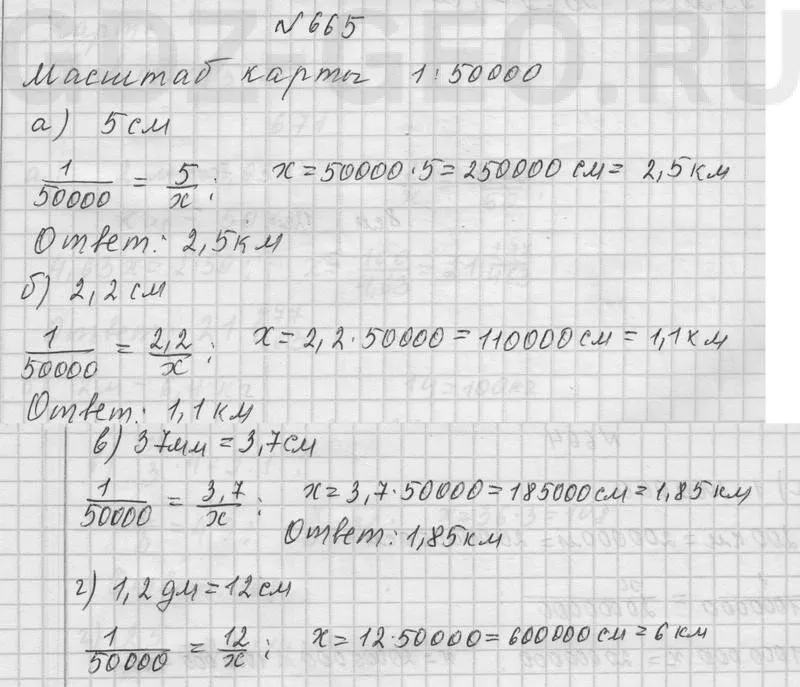 GDZ-GEO.RU
№665
Масштаб карты 1:50000
а) 5см
1/50000 = 5/x; x=50000·5=250000 см= 2,5км
Ответ: 2,5км
б) 2,2 см
1/50000 = 2,2/x; x=2,2·50000=110000см=1,1км
Ответ: 1,1км
в) 37мм=3,7см
1/50000 = 3,7/x; x=3,7·50000=185000см=1,85км
Ответ: 1,85км
г) 1,2дм=12см
1/50000 = 12/x; x=12·50000=600000см=6км